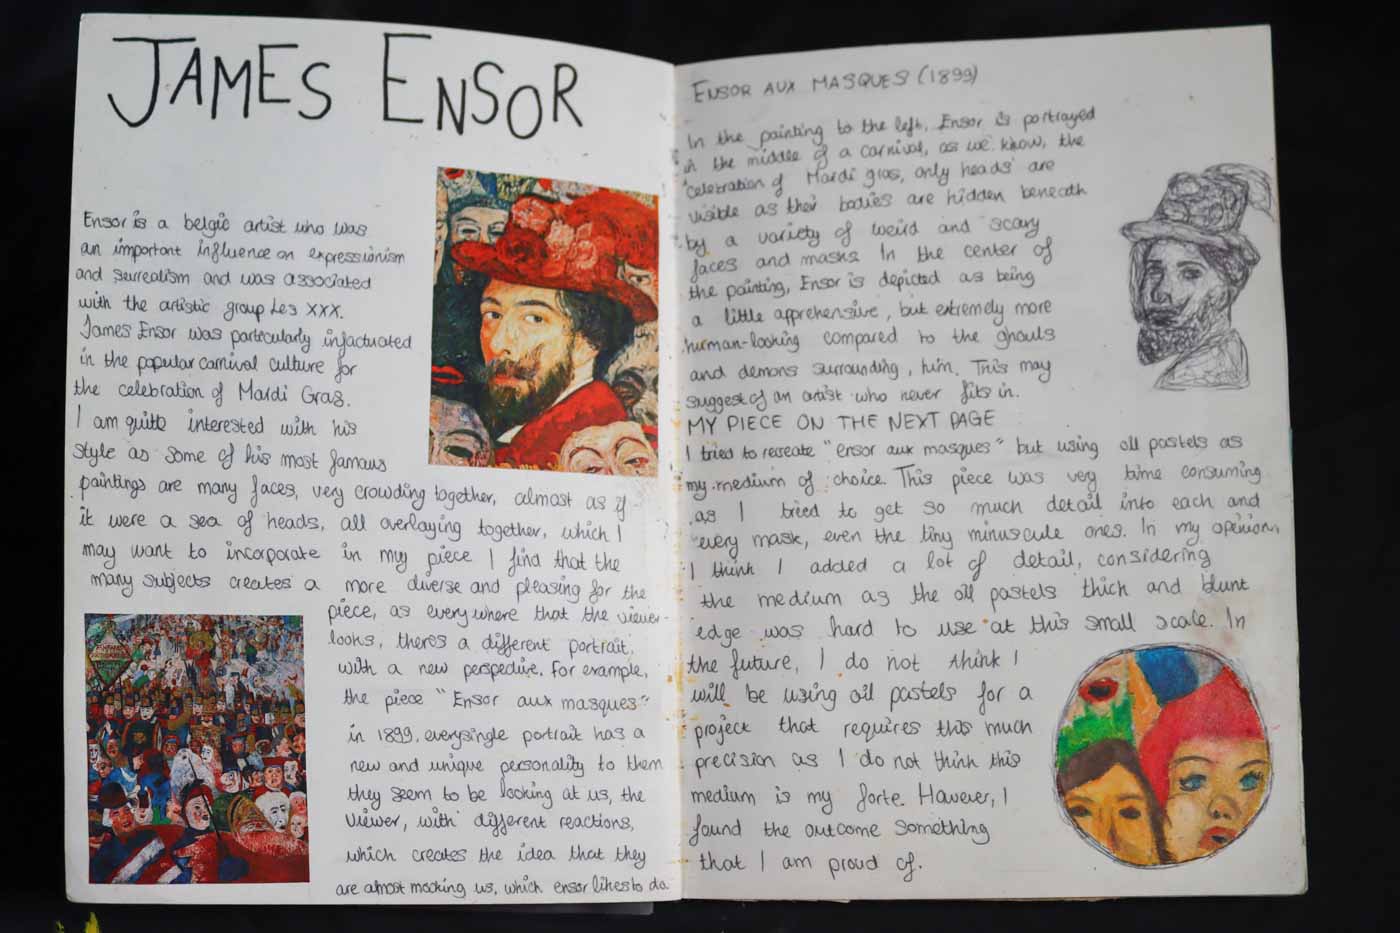 JAMES ENSOR
Ensor is a belgic artist who was
an important influence on expressionism
and surrealism and was associated
with the artistic group Les XXX.
James Ensor was particularly infactuated
in the popular carnival culture for
the celebration of Mardi Gras.
I am quite interested with his
style as some of his most famous
paintings are many faces, very crowding together, almost as if
it were a sea of heads, all overlaying together, which I
may want to incorporate in my piece I find that the
many subjects creates a more diverse and pleasing for the
piece, as everywhere that the viewer
looks, theres a different portrait,
with a new perspective. For example,
the piece "Ensor aux masques"
in 1899. everysingle portrait has a
new and unique personality to them
they seem to be looking at us, the
viewer, with different reactions,
which creates the idea that they
are almost mocking us, which ensor likes to do
ENSOR AUX MASQUES (1899)
In the painting to the left, Ensor is portrayed
in the middle of a carnival, as we know, the
celebration of Mardi gras, only heads are
visible as their bodies are hidden beneath
by a variety of weird and scary
faces and masks In the center of
the painting, Ensor is depicted as being
a little apprehensive, but extremely more
human-looking compared to the ghouls
and demons surrounding, him. This may
suggest of an artist who never fits in.
MY PIECE ON THE NEXT PAGE
I tried to recreate "ensor aux masques" but using oil pastels as
my medium of choice. This piece was very time consuming
as I tried to get so much detail into each and
every mask, even the tiny minuscule ones. In my opinion,
I think I added a lot of detail, considering
the medium as the oil pastels thick and blunt
edge was hard to use at this small scale. In
the future, I do not think I
will be using oil pastels for a
project that requires this much
precision as I do not think this
medium is my forte. However, I
found the outcome something
that I am proud of.